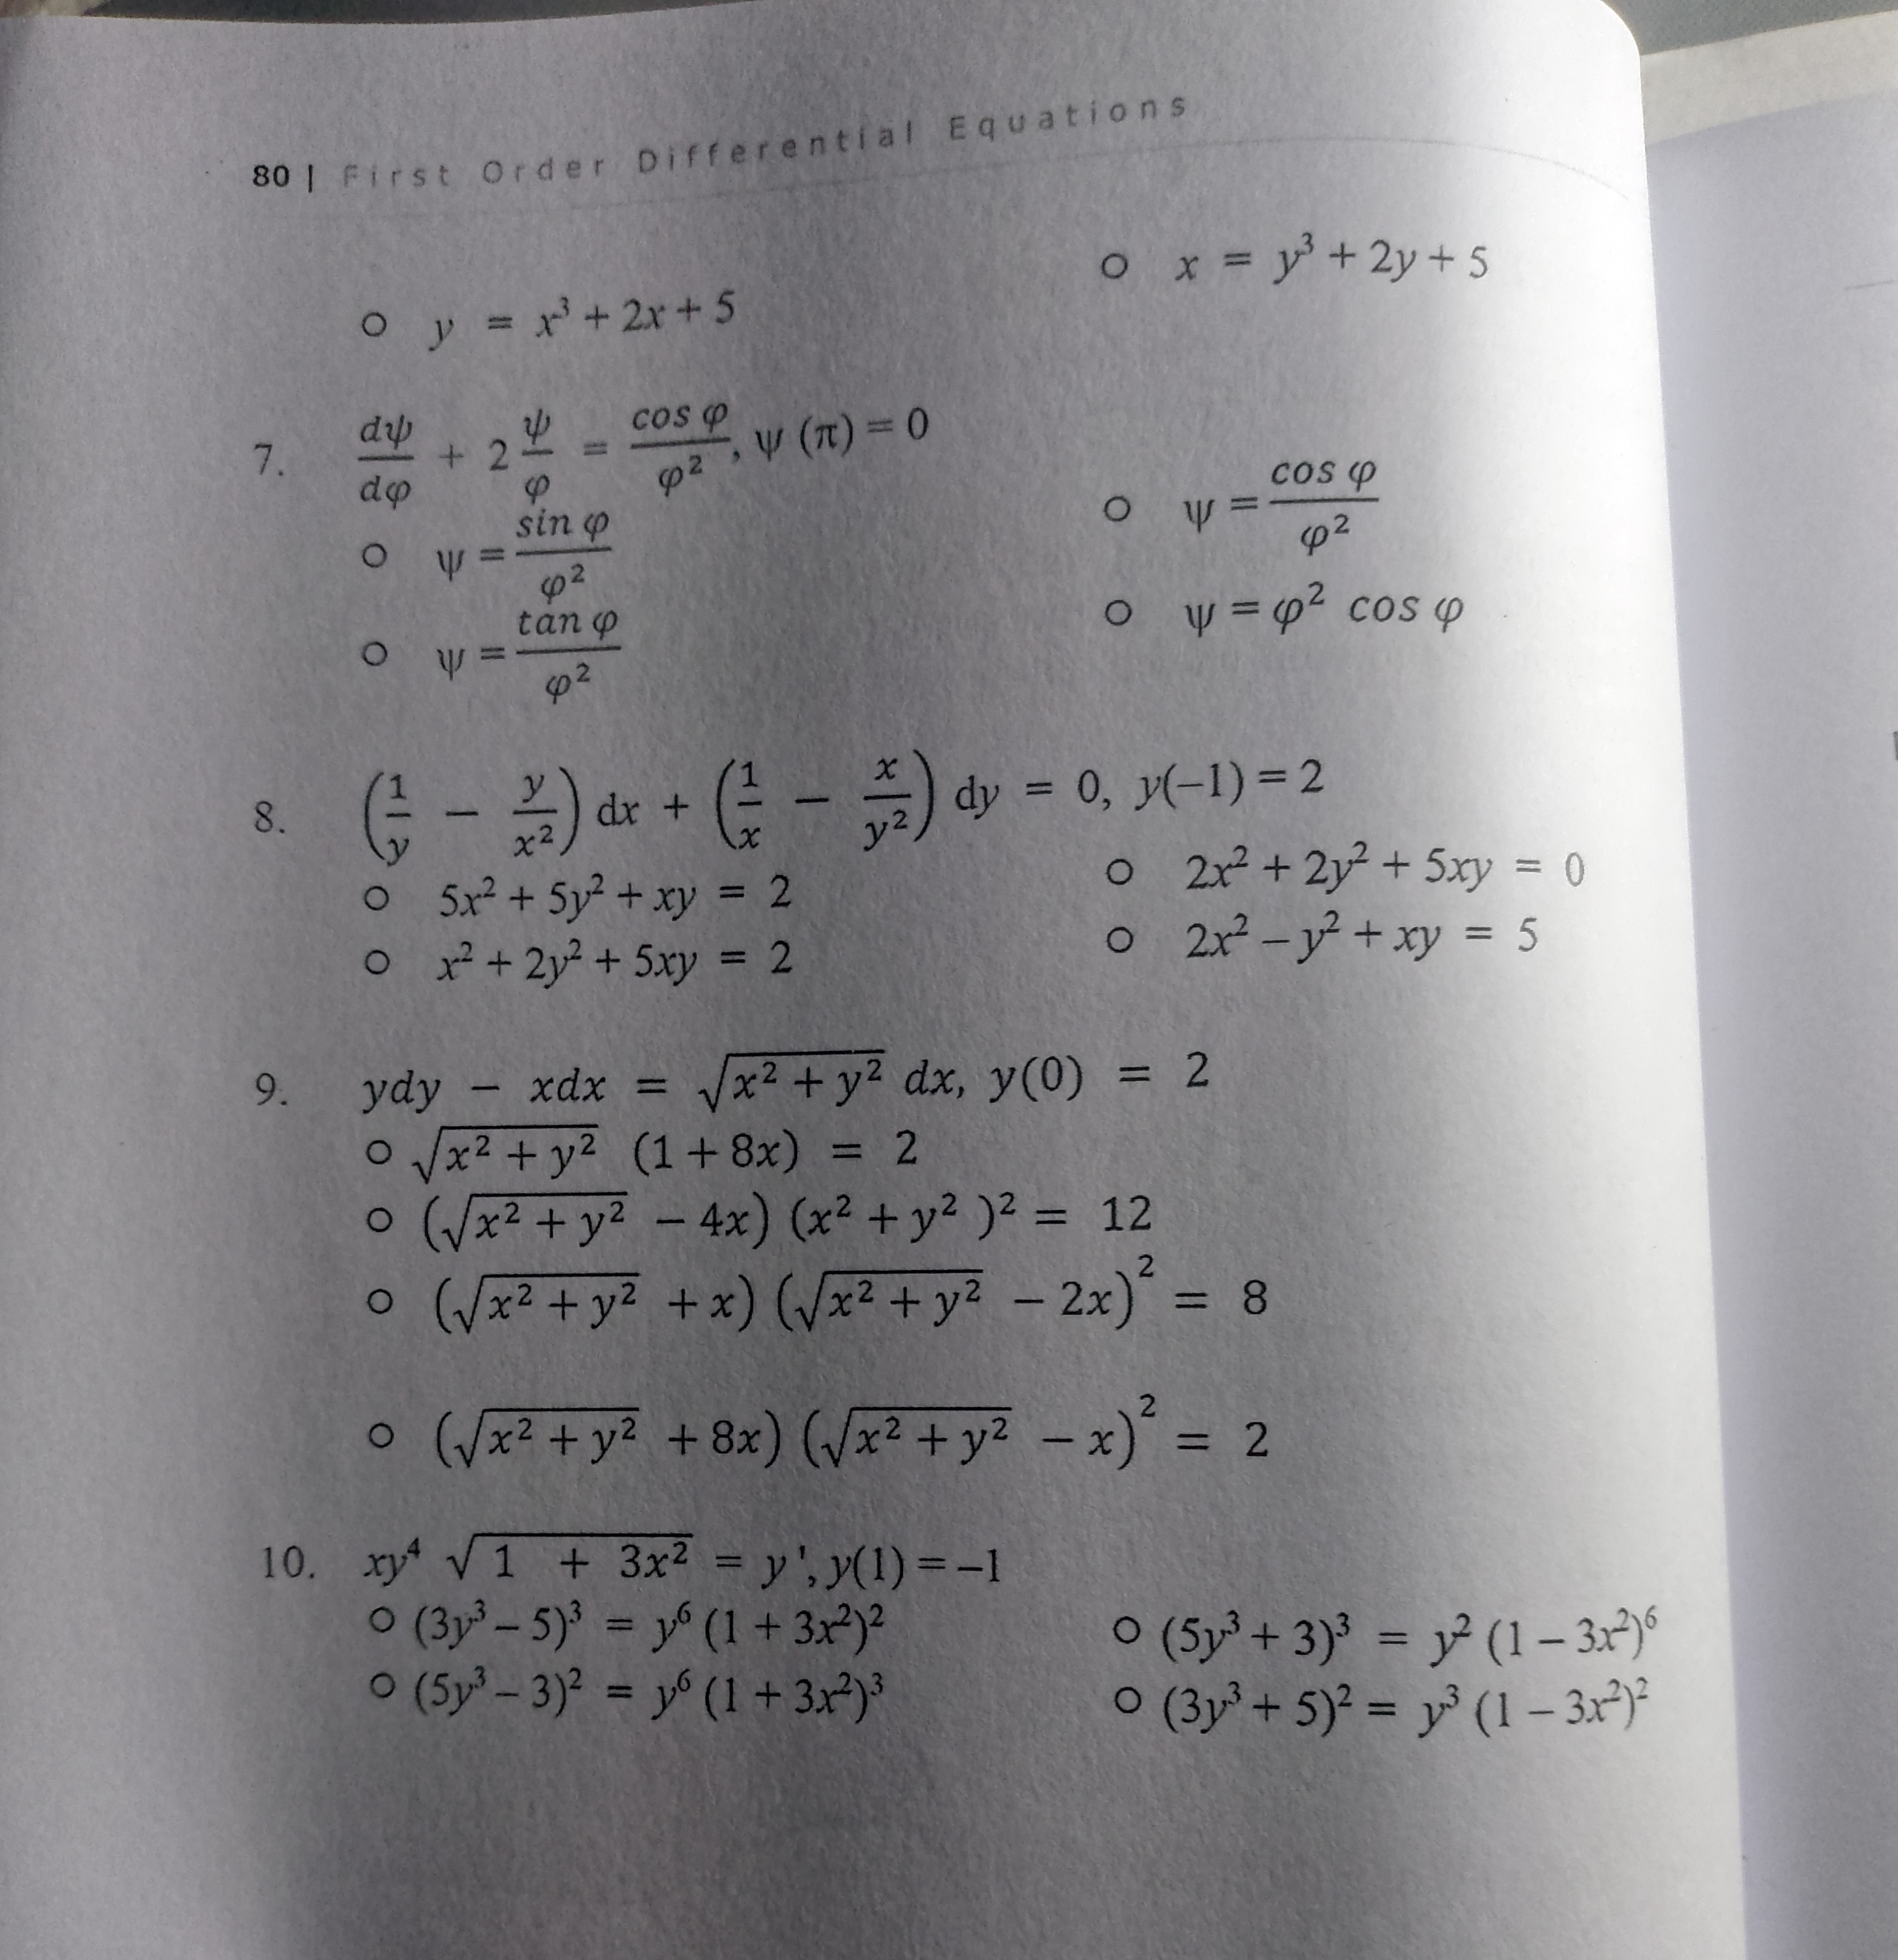 80 | First Order Differential Equations
○ x = y³ + 2y + 5
○ y = x³ + 2x + 5
7. dψ/dφ + 2 ψ/φ = cos φ/φ², ψ (π) = 0
○ ψ = cos φ/φ²
○ ψ = sin φ/φ²
○ ψ = φ² cos φ
○ ψ = tan φ/φ²
8. (1/y − y/x²) dx + (1/x − x/y²) dy = 0, y(−1) = 2
○ 2x² + 2y² + 5xy = 0
○ 5x² + 5y² + xy = 2
○ 2x² − y² + xy = 5
○ x² + 2y² + 5xy = 2
9. ydy − xdx = √(x² + y²) dx, y(0) = 2
○ √(x² + y²) (1 + 8x) = 2
○ (√(x² + y²) − 4x) (x² + y² )² = 12
○ (√(x² + y²) + x) (√(x² + y²) − 2x)² = 8
○ (√(x² + y²) + 8x) (√(x² + y²) − x)² = 2
10. xy⁴ √(1 + 3x²) = y', y(1) = −1
○ (3y³ − 5)³ = y⁶ (1 + 3x²)² ○ (5y³ + 3)³ = y² (1 − 3x²)⁶
○ (5y³ − 3)² = y⁶ (1 + 3x²)³ ○ (3y³ + 5)² = y³ (1 − 3x²)²